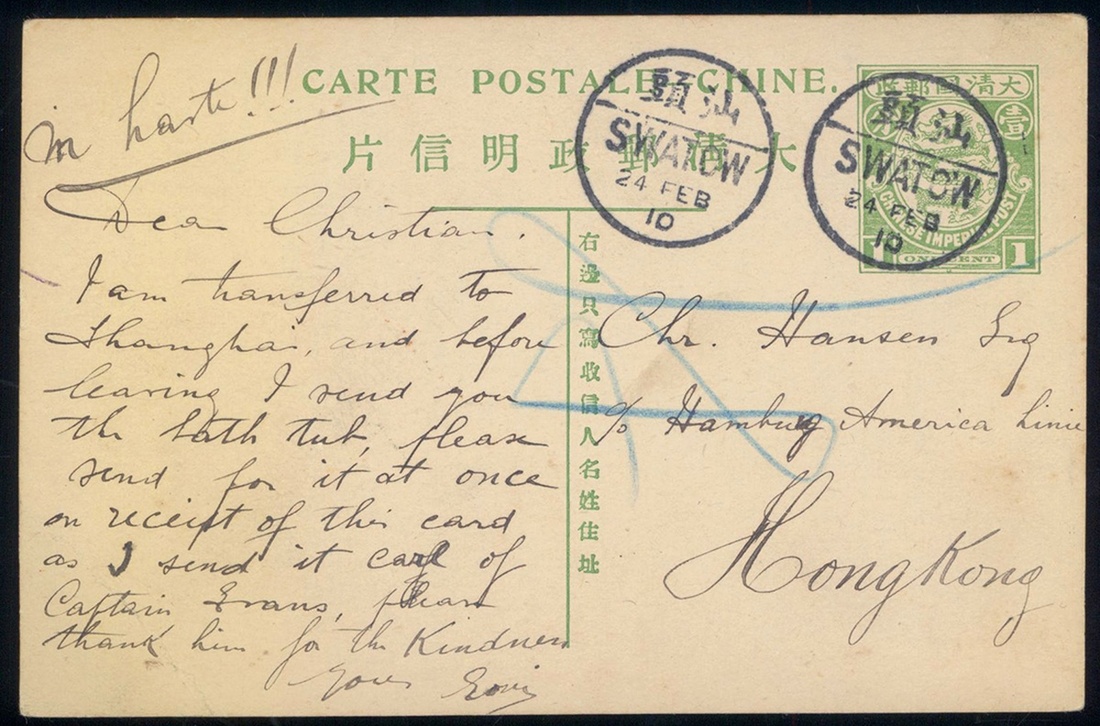 CARTE POSTALE CHINE.
片信明政郵清大
in haste!!!
頭汕
SWATOW
24 FEB
10
頭汕
SWATOW
24 FEB
10
政郵國清大
壹
分
CHINESE IMPERIAL POST
1 ONE CENT 1
右邊只寫收信人名姓住址
Dear Christian.
I am transferred to
Shanghai, and before
leaving I send you
the bath tub, please
send for it at once
on receipt of this card
as I send it care of
Captain Evans, please
thank him for the Kindness
Yours
Chr. Hansen Esq
c/o Hamburg America Linie
HongKong